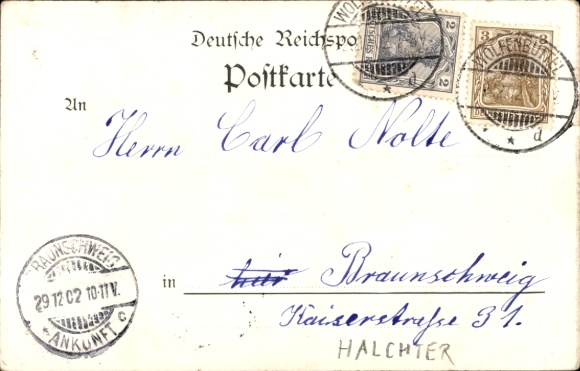 Deutsche Reichspo
Postkarte
WOLFENBÜTTEL
d
2
2
WOLFENBÜTTEL
d
3
3
An
Herrn Carl Nolte
BRAUNSCHWEIG
29.12.02 10-11 V.
ANKUNFT
c
in hier Braunschweig
Kaiserstraße 31.
HALCHTER